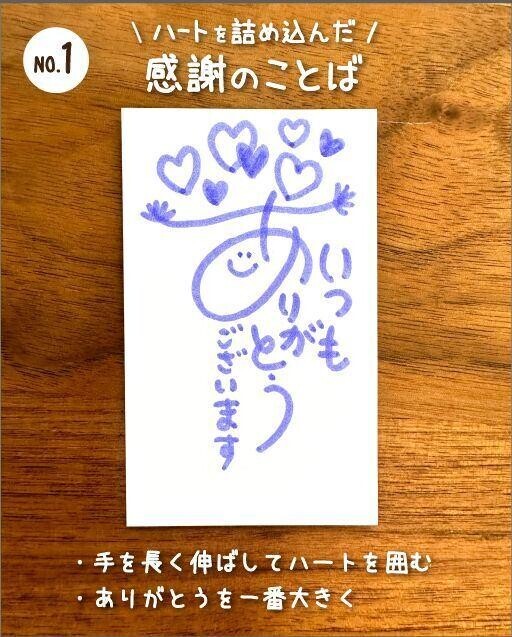 NO.1
\ ハートを詰め込んだ /
感謝のことば
いつも
ありがとう
ございます
・手を長く伸ばしてハートを囲む
・ありがとうを一番大きく